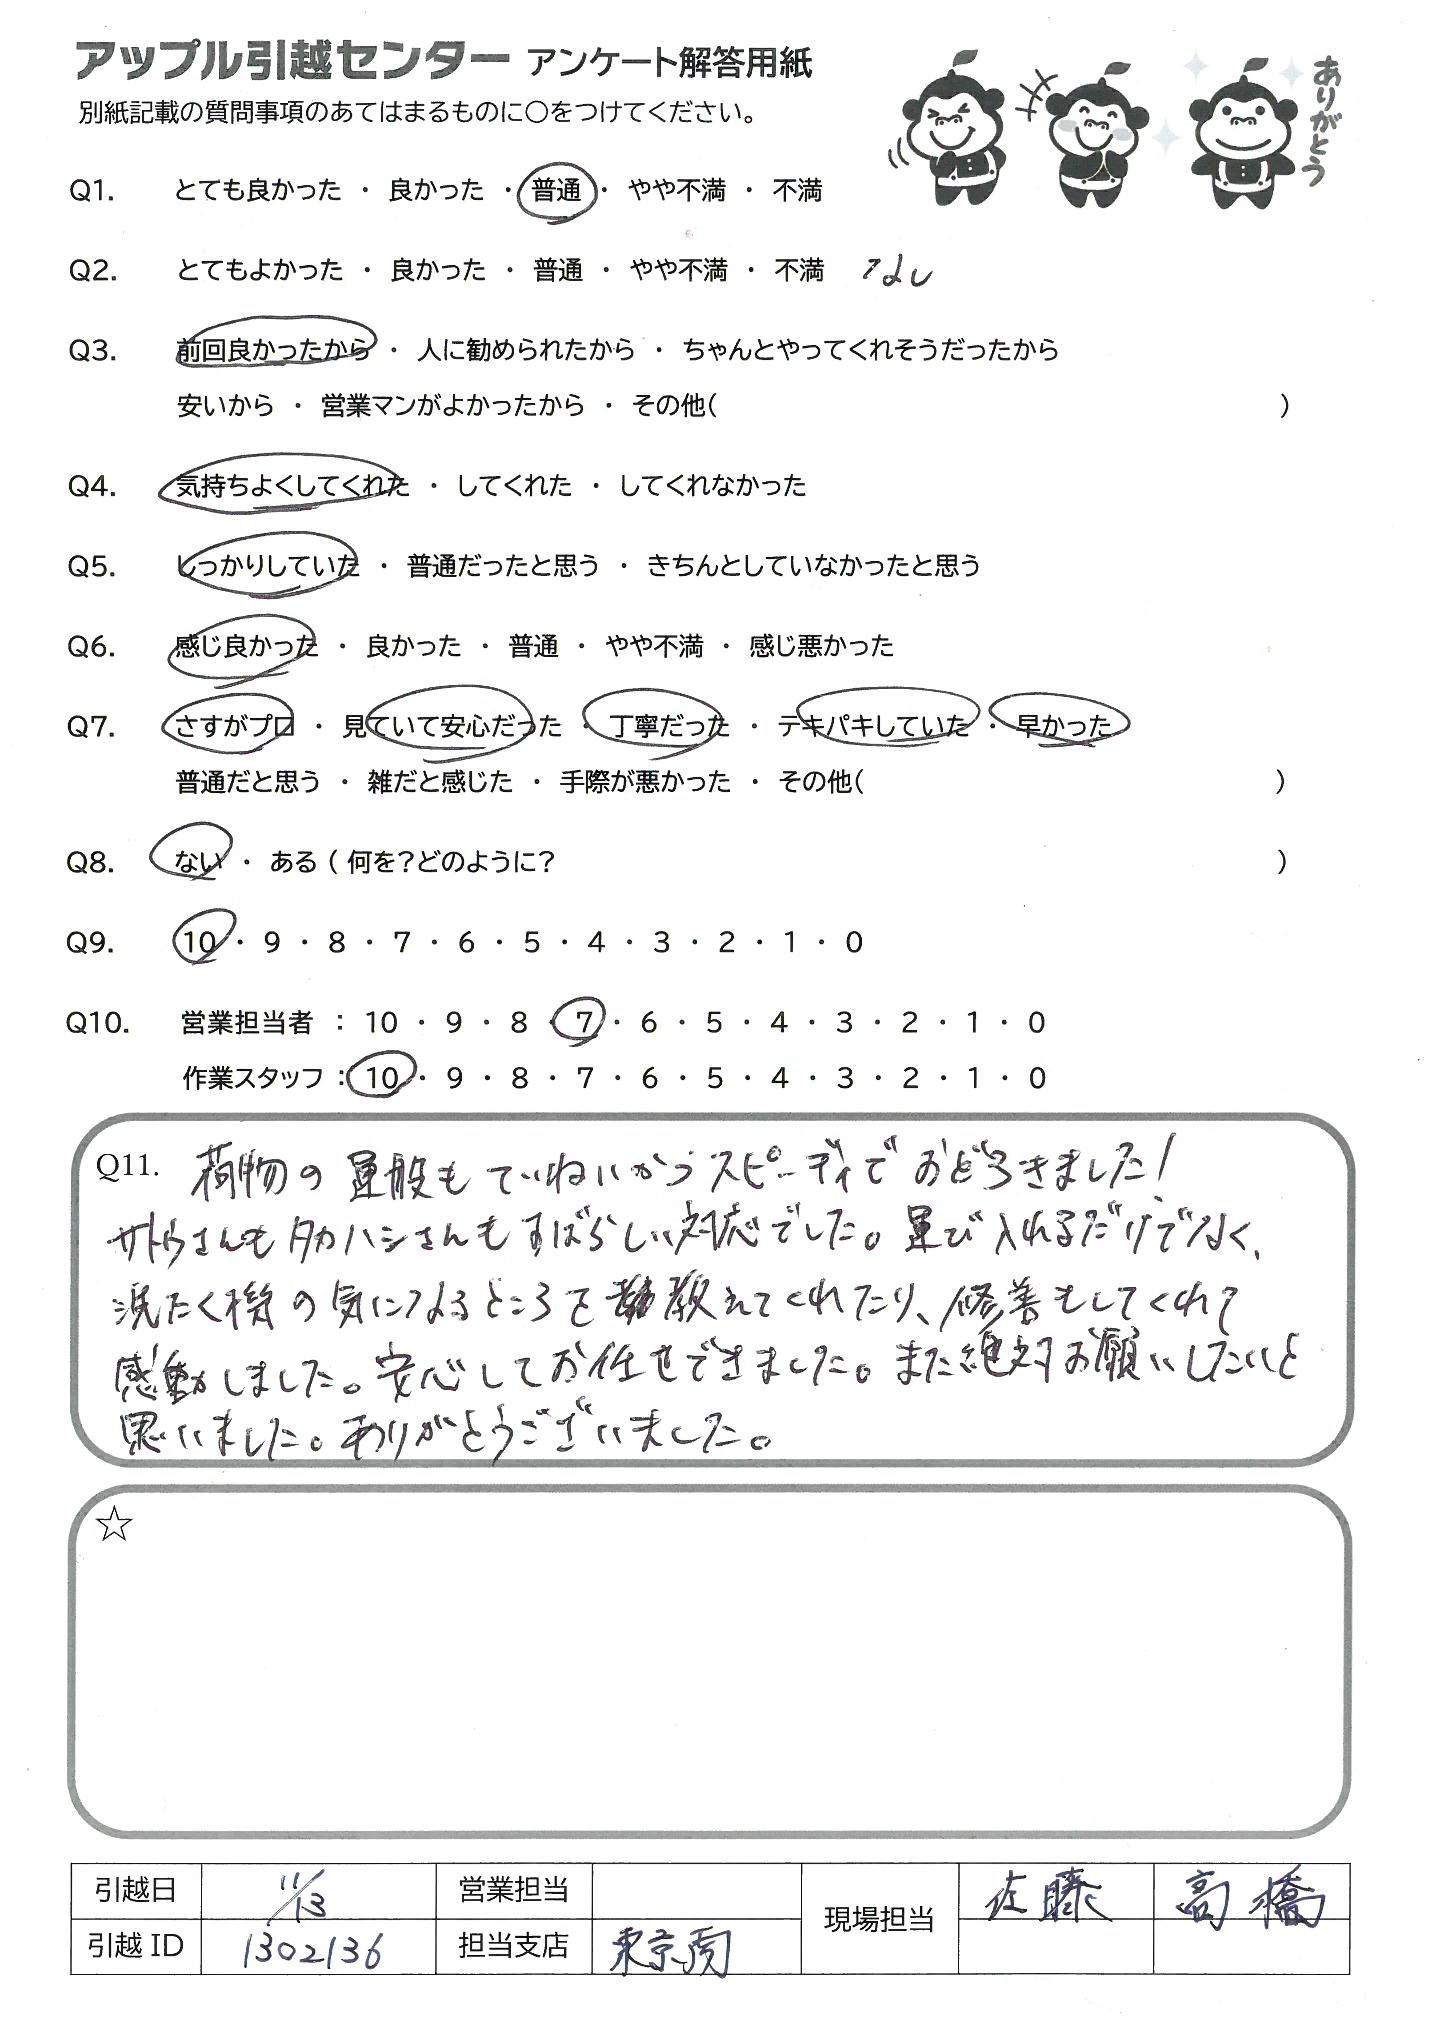 アップル引越センター アンケート解答用紙
別紙記載の質問事項のあてはまるものに○をつけてください。
ありがとう
Q1. とても良かった ・ 良かった ・ 普通 ・ やや不満 ・ 不満
Q2. とてもよかった ・ 良かった ・ 普通 ・ やや不満 ・ 不満 なし
Q3. 前回良かったから ・ 人に勧められたから ・ ちゃんとやってくれそうだったから
安いから ・ 営業マンがよかったから ・ その他( )
Q4. 気持ちよくしてくれた ・ してくれた ・ してくれなかった
Q5. しっかりしていた ・ 普通だったと思う ・ きちんとしていなかったと思う
Q6. 感じ良かった ・ 良かった ・ 普通 ・ やや不満 ・ 感じ悪かった
Q7. さすがプロ ・ 見ていて安心だった ・ 丁寧だった ・ テキパキしていた ・ 早かった
普通だと思う ・ 雑だと感じた ・ 手際が悪かった ・ その他( )
Q8. ない ・ ある ( 何を?どのように? )
Q9. 10 ・ 9 ・ 8 ・ 7 ・ 6 ・ 5 ・ 4 ・ 3 ・ 2 ・ 1 ・ 0
Q10. 営業担当者 : 10 ・ 9 ・ 8 ・ 7 ・ 6 ・ 5 ・ 4 ・ 3 ・ 2 ・ 1 ・ 0
作業スタッフ : 10 ・ 9 ・ 8 ・ 7 ・ 6 ・ 5 ・ 4 ・ 3 ・ 2 ・ 1 ・ 0
Q11. 荷物の運般もていねいかつスピーディでおどろきました!
サトウさんもタカハシさんもすばらしい対応でした。運び入れるだけでなく、
洗たく機の気になるところを教えてくれたり、修善もしてくれて
感動しました。安心してお任せできました。また絶対お願いしたいと
思いました。ありがとうございました。
☆
引越日 11/13 営業担当 現場担当 佐藤 高橋
引越 ID 1302136 担当支店 東京南